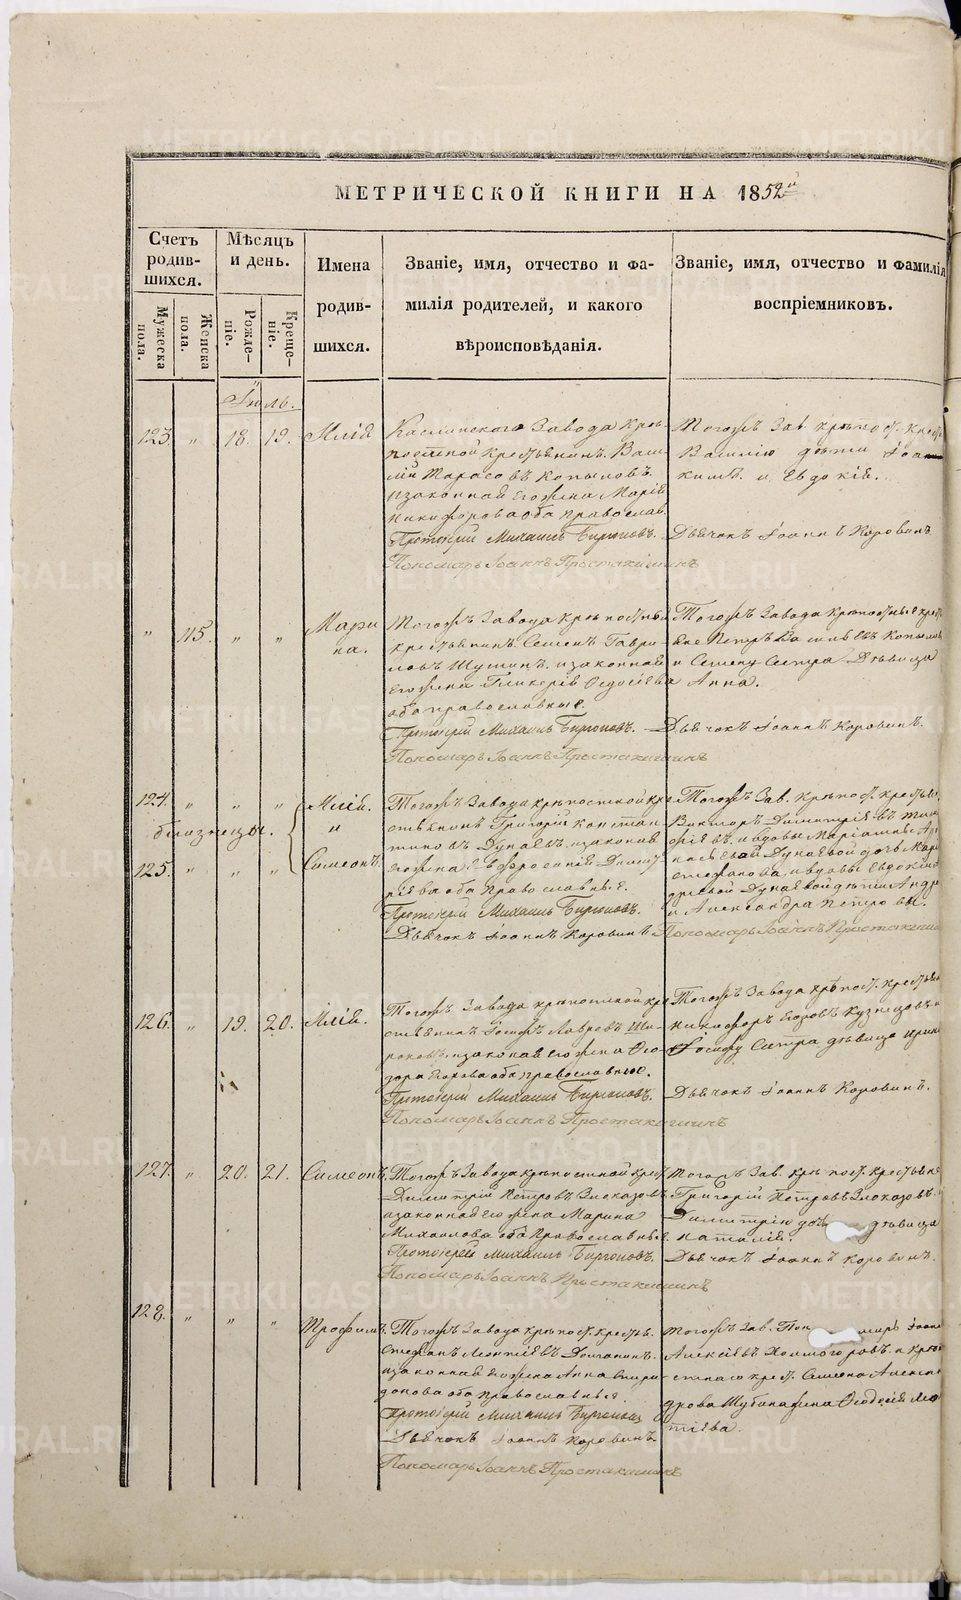 МЕТРИЧЕСКОЙ КНИГИ НА 1852й
Счетъ родив-шихся.
Мужеска пола.
Женска пола.
Мѣсяцъ и день.
Рожде-ніе.
Креще-ніе.
Имена родив-шихся.
Званіе, имя, отчество и фа-
милія родителей, и какого
вѣроисповѣданія.
Званіе, имя, отчество и фамилія
воспріемниковъ.
Іюль.
123. " 18. 19. Илія
Каслинскаго Завода крѣ-
постной крестьянинъ Васи-
лій Тарасовъ Копыловъ
и законная его жена Марія
Никифорова оба православ.
Протоіерей Михаилъ Бирюковъ.
Пономарь Іоаннъ Простакишинъ
Тогожъ Зав. крѣпост. крест.
Василію дѣти Іоа
кимъ и Евдокія.
Дьячокъ Іоаннъ Коровинъ
" 115. " " Мари
на.
Тогожъ Завода крѣпостной
крестьянинъ Семенъ Гаври-
ловъ Шутинъ и законная
его жена Гликерія Ѳедосіева
оба православные.
Протоіерей Михаилъ Бирюковъ.
Пономарь Іоаннъ Простакишинъ
Тогожъ Завода крѣпостные крест
яне Петръ Василіевъ Копыловъ
и Семену Сестра Дѣвица
Анна.
Дьячокъ Іоаннъ Коровинъ.
124. " " " Илій.
близнецы. "
125. " " " Симеонъ
Тогожъ Завода крѣпостной кре
стьянинъ Григорій Констан-
тиновъ Дунаевъ и законная
его жена Дими
ріева оба православные.
Протоіерей Михаилъ Бирюковъ.
Дьячокъ Іоаннъ Коровинъ Пономарь Іоаннъ Простакишинъ
Тогожъ Зав. крѣпост. крестья
Викторъ Димитріевъ Тимо
фіевъ, и вдовы
Дунаевой дочь Мар
Стефанова, и вдовы Евдокіи
Дунаевой дѣти Андр
и Александра Петровы.
126. " 19. 20. Илій.
Тогожъ Завода крѣпостной кре
стьянинъ Іосифъ Лавровъ Ши-
роковъ, и законная его жена Ѳео-
дора Егорова оба православные.
Протоіерей Михаилъ Бирюковъ.
Пономарь Іоаннъ Простакишинъ
Тогожъ Завода крѣпост. крестьян
Никифоръ Егоровъ Кузнецовъ и
Іосифу Сестра дѣвица Ирин
Дьячокъ Іоаннъ Коровинъ.
127. " 20. 21. Симеонъ
Тогожъ Завода крѣпостной крест
Димитрій Петровъ Злоказовъ
и законная его жена Марина
Михаилова оба Православные.
Протоіерей Михаилъ Бирюковъ.
Пономарь Іоаннъ Простакишинъ
Тогожъ Зав. крѣпост. крестьяне
Григорій Петровъ Злоказовъ и
Димитрію до дѣвица
Наталія.
Дьячокъ Іоаннъ Коровинъ.
128. " " " Трофимъ
Тогожъ Завода крѣпост. крестьян.
Стефанъ Леонтіевъ Долганинъ
и законная его жена Анна Спири
донова оба православные
Протоіерей Михаилъ Бирюковъ
Дьячокъ Іоаннъ Коровинъ
Пономарь Іоаннъ Простакишинъ
Тогожъ Зав. Іоанн
Алексіевъ Холмогоровъ и крѣпо
стнаго крест. Симеона Алексан
дрова Шубина жена Ѳеодосія Леон
тіева.
METRIKI.GASO-URAL.RU